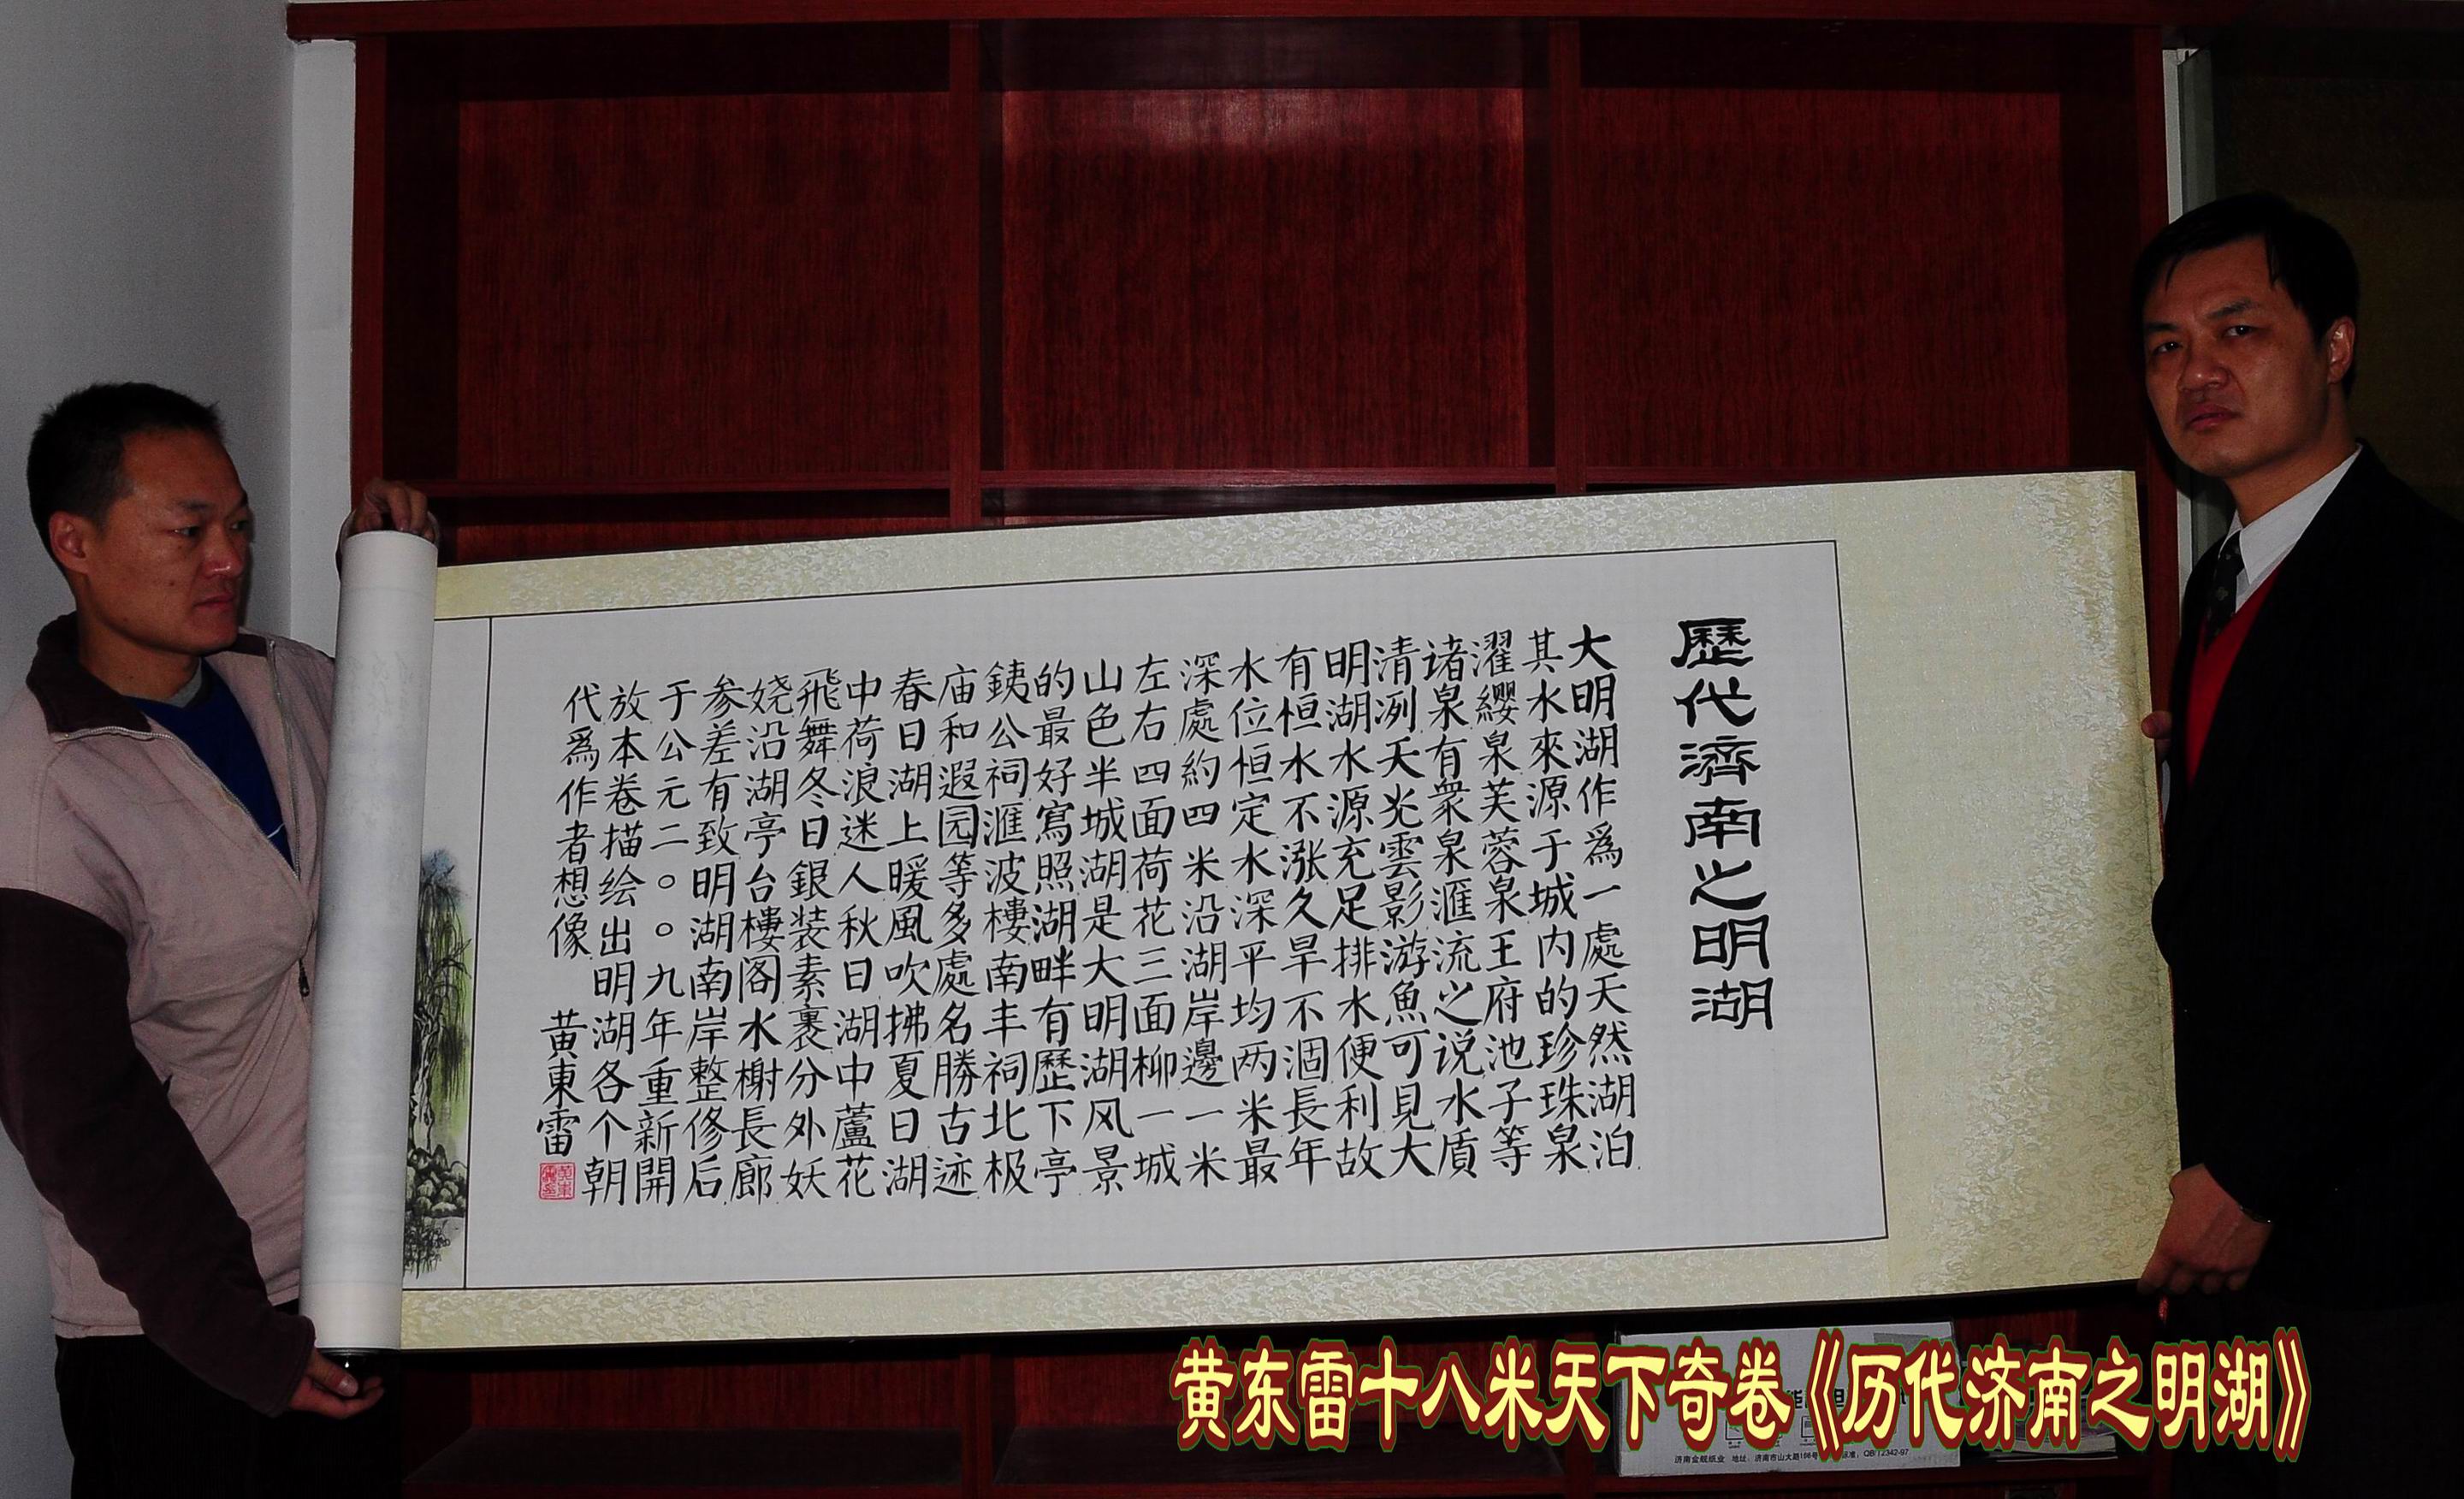 歷代濟南之明湖
大明湖作爲一處天然湖泊
其水來源于城内的珍珠泉
濯纓泉芙蓉泉王府池子等
诸泉有衆泉滙流之说水貭
清冽天光雲影游魚可見大
明湖水源充足排水便利故
有恒水不涨久旱不涸長年
水位恒定水深平均两米最
深處約四米沿湖岸邊一米
左右四面荷花三面柳一城
山色半城湖是大明湖风景
的最好寫照湖畔有歷下亭
銕公祠滙波樓南丰祠北极
庙和遐园等多處名勝古迹
春日湖上暖風吹拂夏日湖
中荷浪迷人秋日湖中蘆花
飛舞冬日銀装素裹分外妖
娆沿湖亭台樓阁水榭長廊
参差有致明湖南岸整修后
于公元二○○九年重新開
放本卷描绘出明湖各个朝
代爲作者想像
黄東雷
黄东雷十八米天下奇卷《历代济南之明湖》
济南金舰纸业 地址：济南市山大路166号 QB/T2342-97